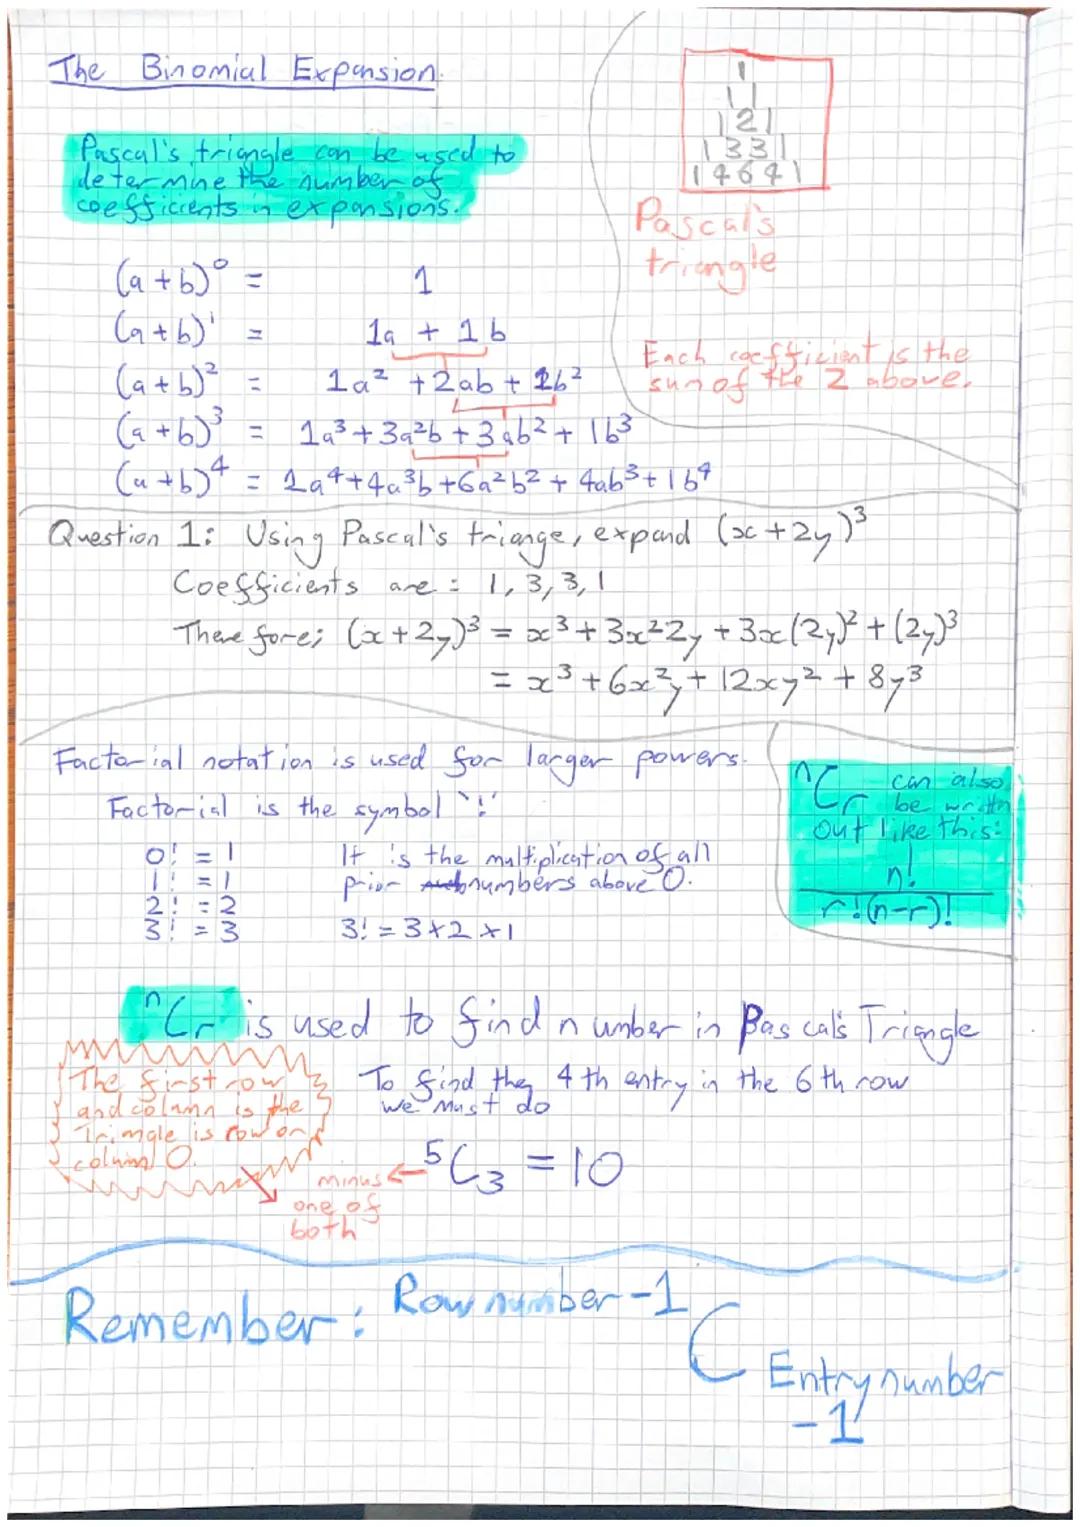 The Binomial Expansion.
1
1 1
1 2 1
1 3 3 1
1 4 6 4 1
Pascal's triangle
Each coefficient is the
sum of the 2 above.
Pascal's triangle can be used to
determine the number of
coefficients in expansions.
(a+b)⁰ = 1
(a+b)¹ = 1a + 1b
(a+b)² = 1a² + 2ab + 1b²
(a+b)³ = 1a³ + 3a²b + 3ab² + 1b³
(a+b)⁴ = 1a⁴ + 4a³b + 6a²b² + 4ab³ + 1b⁴
Question 1: Using Pascal's triange, expand (x+2y)³
Coefficients are : 1, 3, 3, 1
Therefore; (x+2y)³ = x³ + 3x²2y + 3x(2y)² + (2y)³
= x³ + 6x²y + 12xy² + 8y³
Factorial notation is used for larger powers.
Factorial is the symbol '!'
0! = 1
1! = 1
2! = 2
3! = 3
It is the multiplication of all
prior numbers above 0.
3! = 3×2×1
ⁿCr can also
be written
out like this:
n!
r!(n-r)!
ⁿCr is used to find number in Pascal's Triangle
The first row
and column is the
Triangle is row or
column 0.
To find the 4th entry in the 6th row
we must do
⁵C₃ = 10
minus
one of
both
Remember: Row number -1
C
Entry number
-1